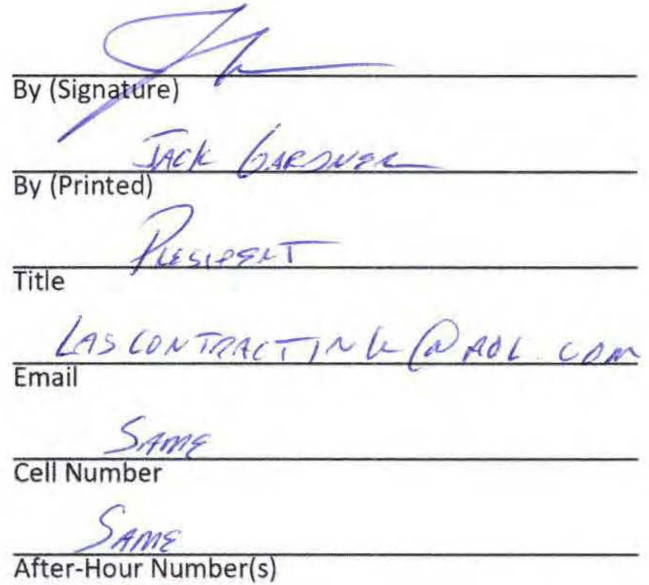 By (Signature)
JACK GARDNER
By (Printed)
PRESIDENT
Title
LASCONTRACTING@AOL.COM
Email
SAME
Cell Number
SAME
After-Hour Number(s)